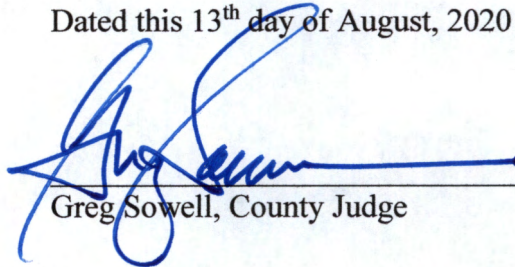 Dated this 13th day of August, 2020
Greg Sowell, County Judge